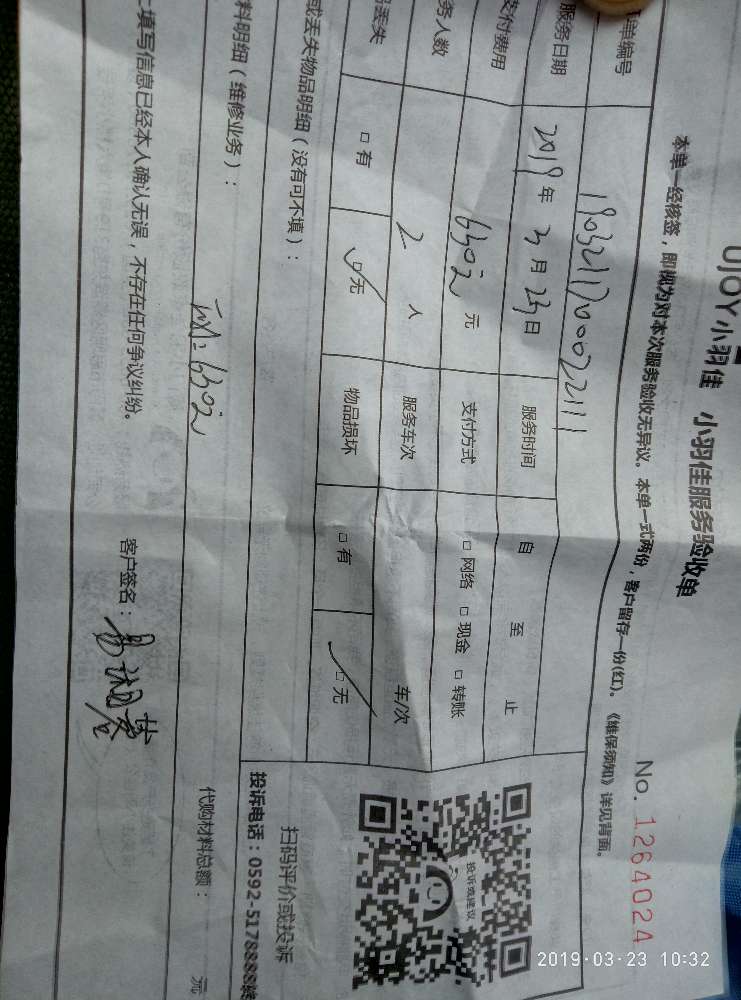 UJOY小羽佳 小羽佳服务验收单
No. 1264024
本单一经核签，即视为对本次服务验收无异议。本单一式两份，客户留存一份(红)。《维保须知》详见背面。
单编号
服务日期 2019 年 3 月 23 日 服务时间 自 至 止
支付费用 630元 元 支付方式 □ 网络 □ 现金 □ 转账
务人数 2 人 服务车次 车/次
品丢失 □ 有 □ 无 物品损坏 □ 有 □ 无
或丢失物品明细（没有可不填）：
投诉或建议
扫码评价或投诉
投诉电话：0592-5178888转
料明细（维修业务）：
代购材料总额： 元
上填写信息已经本人确认无误，不存在任何争议纠纷。
客户签名：
2019-03-23 10:32